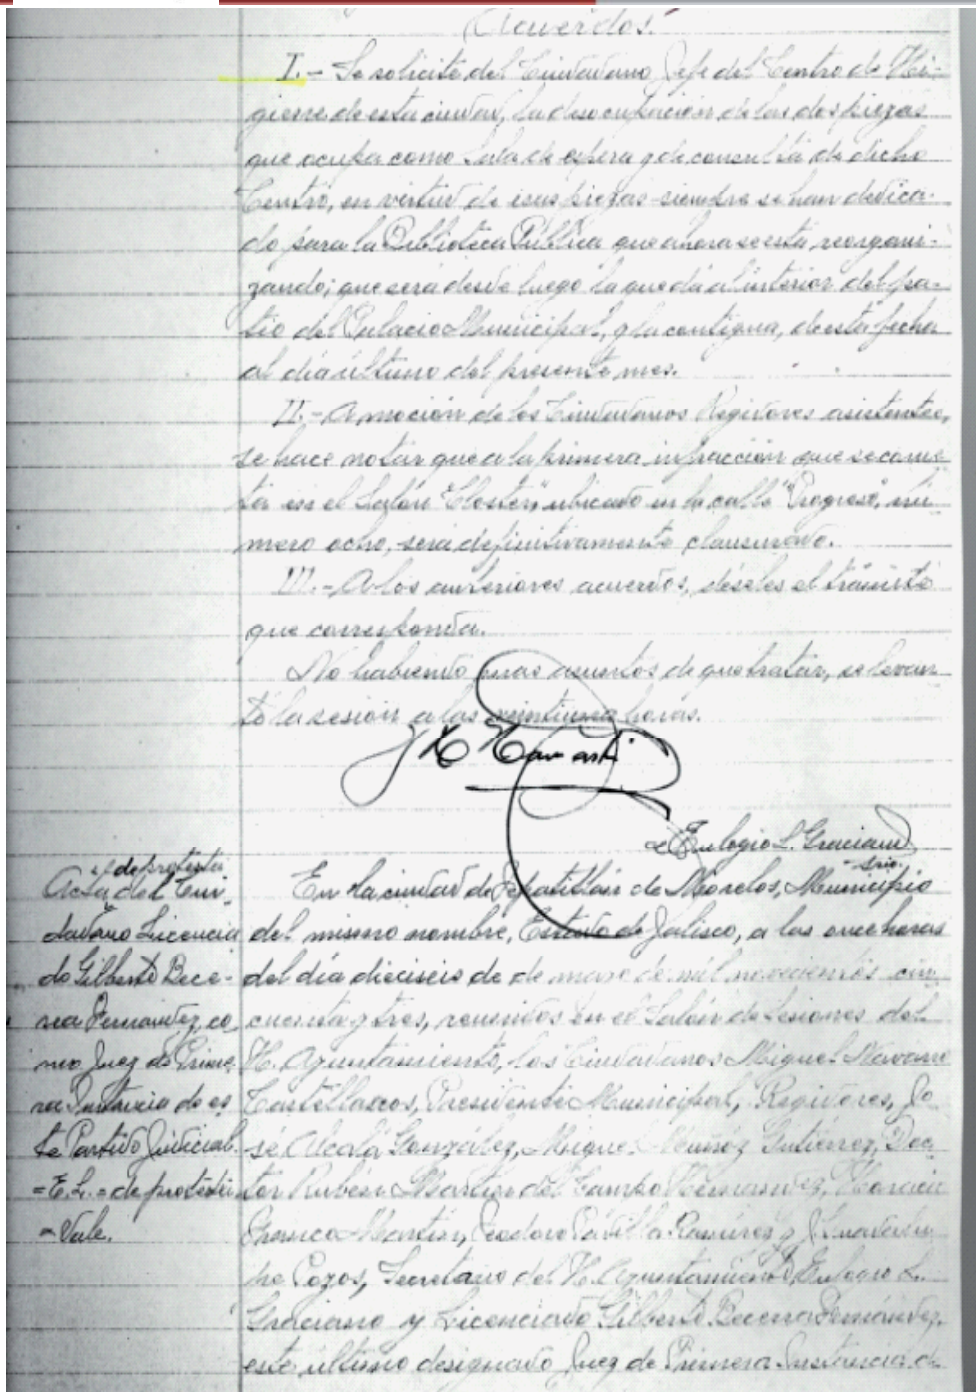 Acuerdos.
I.- Se solicite del Ciudadano Jefe del Centro de Hi-
giene de esta ciudad, la desocupación de las dos piezas
que ocupa como Sala de espera y de consulta de dicho
Centro, en virtud de esas piezas siempre se han dedica-
do para la Biblioteca Pública que ahora se está reorgani-
zando; que será desde luego la que dá al interior del pa-
tio del Palacio Municipal, y la contigua, de esta fecha
al día último del presente mes.
II.- A moción de los Ciudadanos Regidores asistentes,
se hace notar que a la primera infracción que se come-
ta en el Salón ubicado en la calle "Progreso", nú-
mero ocho, será definitivamente clausurado.
III.- A los anteriores acuerdos, déseles el trámite
que corresponda.
No habiendo mas asuntos de que tratar, se levan
tó la sesión a las veintiuna horas.
Eulogio L. Graciano
Srio.
de protesta
Acta del Ciu-
dadano Licencia
do Gilberto Bece-
rra Fernández, co-
mo Juez de Prime-
ra Instancia de es
te Partido Judicial.
=E.L.= de protesta
= Vale.
En la ciudad de Tepatitlán de Morelos, Municipio
del mismo nombre, Estado de Jalisco, a las once horas
del día dieciseis de de marzo de mil novecientos cin
cuenta y tres, reunidos en el Salón de Sesiones del
H. Ayuntamiento, los Ciudadanos Miguel Navarro
Castellanos, Presidente Municipal, Regidores, Jo
sé Alcalá González, Miguel Muñoz Gutiérrez, Doc
tor Rubén Martín del Campo Hernández, Horacio
Franco Martín, Teodoro Padilla Ramírez y J. Guadalu
pe Pozos, Secretario del H. Ayuntamiento Eulogio L.
Graciano y Licenciado Gilberto Becerra Fernández,
este último designado Juez de Primera Instancia de